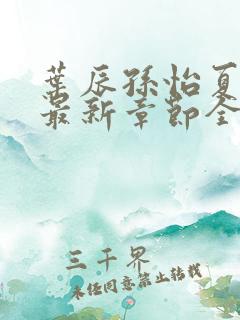 叶辰孙怡夏
最新章节全
三千界
未经同意禁止转载